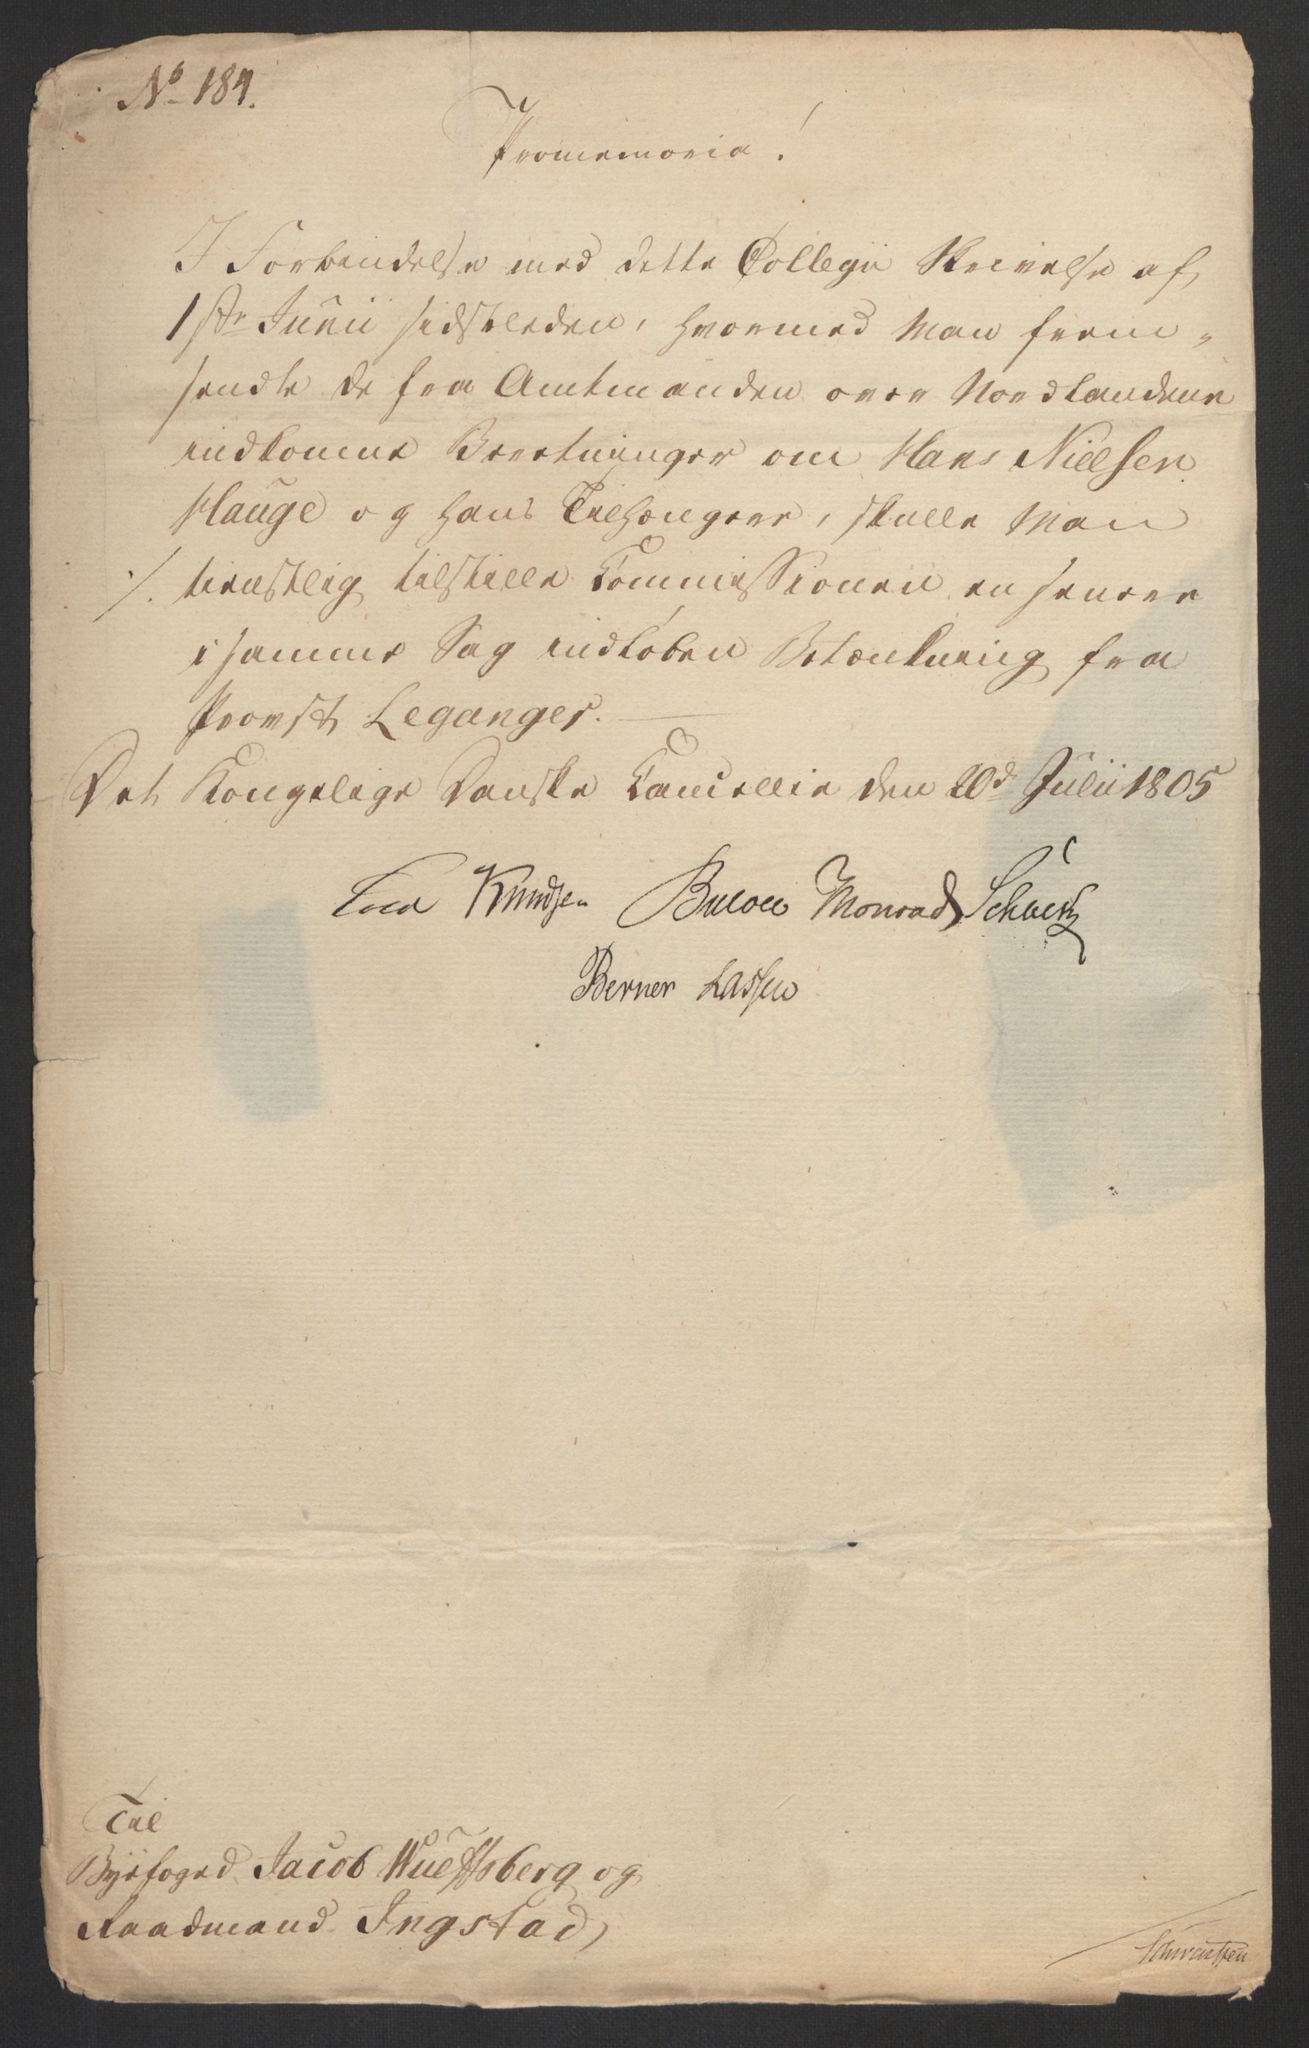 No 184.
Promemoria!
I Forbindelse med dette Collegii Skrivelse af
1ste Junii sidstleden, hvormed Man frem-
sendte de fra Amtmanden over Nordlandene
indkomne Beretninger om Hans Nielsen
Hauge og hans Tilhængere, skulle Man
/. tienstlig tilstille Commissionen en senere
i samme Sag indløben Betænkning fra
Provst Leganger.
Det Kongelige Danske Cancellie den 20d Julii 1805
Knudsen Bülow Monrad
Berner Lassen
Til
Byefoged Jacob Wulfsberg og
Raadmand Ingstad,